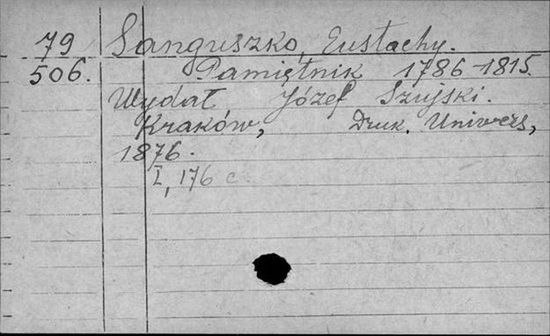 79 Sanguszko, Eustachy.
506. Pamiętnik 1786-1815.
Wydał Józef Szujski.
Kraków, Druk. Univers,
1876.
I, 176 c.